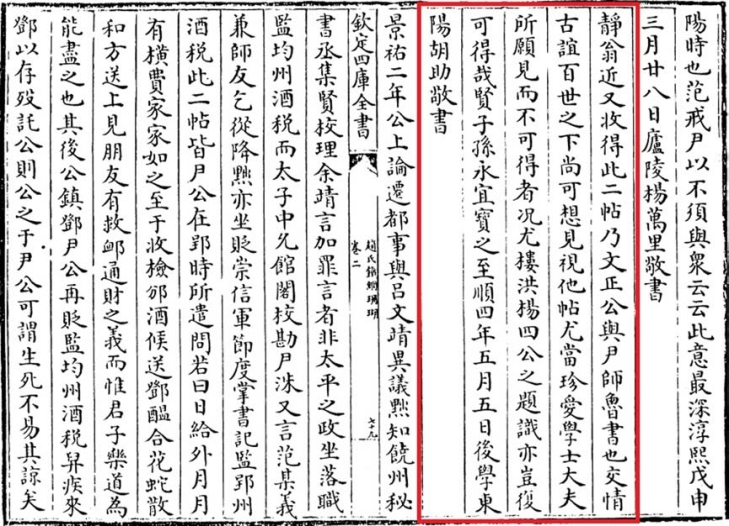 陽時也范戒尹以不須與衆云云此意最深淳熙戊申
三月廿八日廬陵楊萬里敬書
靜翁近又收得此二帖乃文正公與尹師魯書也交情
古誼百世之下尚可想見視他帖尤當珍愛學士大夫
所願見而不可得者况尤樓洪楊四公之題識亦豈復
可得哉賢子孫永宜寳之至順四年五月五日後學東
陽胡助敬書
景祐二年公上論遷都事與吕文靖異議黜知饒州秘
欽定四庫全書
趙氏鐵網珊瑚
卷二
六十九
書丞集賢校理余靖言加罪言者非太平之政坐落職
監均州酒税而太子中允館閣校勘尹洙又言范某義
兼師友乞從降黜亦坐貶崇信軍節度掌書記監郢州
酒税此二帖皆尹公在郢時所遣問若曰日給外月月
有横費家家如之至于收檢邠酒候送鄧醖合花蛇散
和方送上見朋友有救卹通財之義而惟君子樂道為
能盡之也其後公鎮鄧尹公再貶監均州酒税舁疾來
鄧以存殁託公則公之于尹公可謂生死不易其諒矣